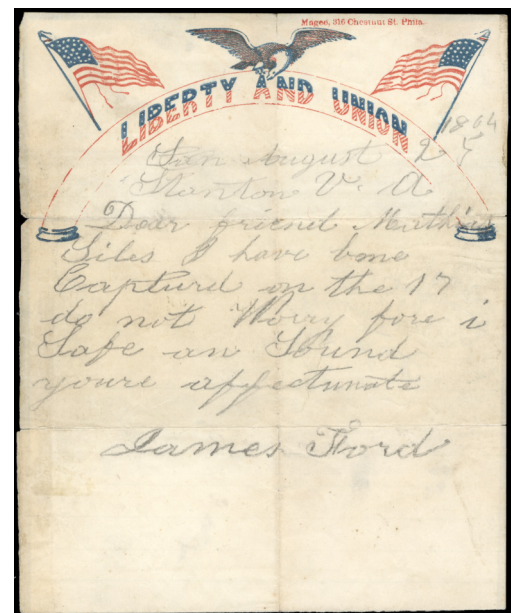 Magee, 316 Chestnut St. Phila.
LIBERTY AND UNION
1864
August 25
Stanton V. A
Dear friend
Giles I have bone
Capturd on the 17
do not Worry fore i
Safe an Sound
youre affectunate
James Ford